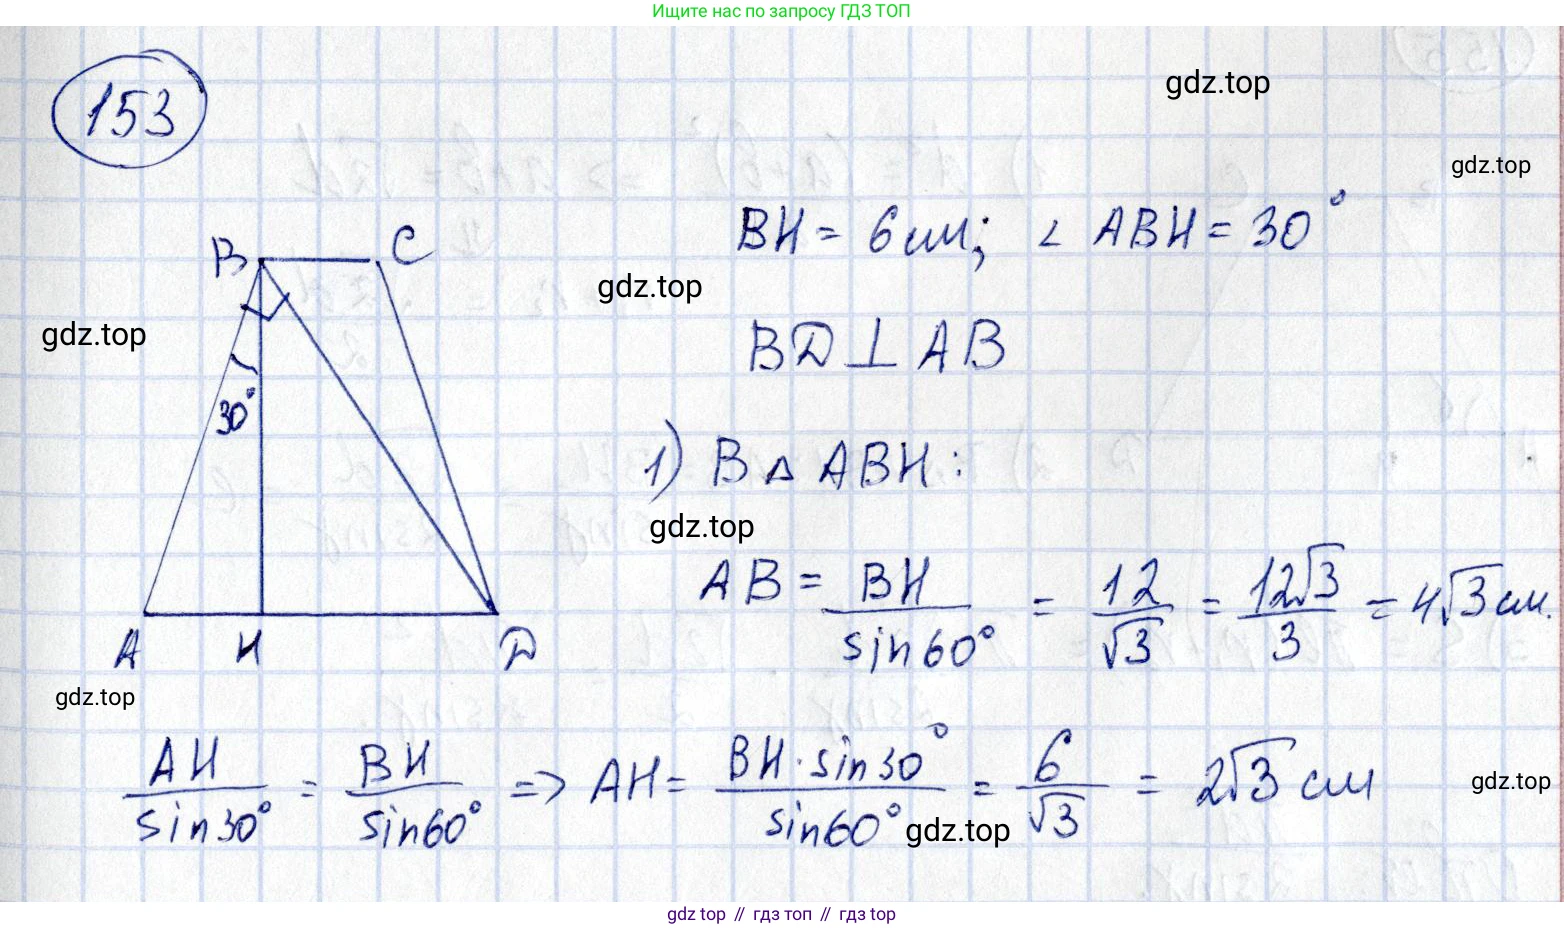 Ищите нас по запросу ГДЗ ТОП
153
gdz.top
gdz.top
BH = 6 см; ∠ ABH = 30°
B C
gdz.top
gdz.top
BD ⊥ AB
30°
1) В △ ABH:
gdz.top
AB = BH / sin60° = 12 / √3 = 12√3 / 3 = 4√3 см.
A H D
gdz.top
AH / sin30° = BH / sin60° => AH = BH · sin30° / sin60° = 6 / √3 = 2√3 см
gdz.top
gdz.top
gdz top // гдз топ // гдз top